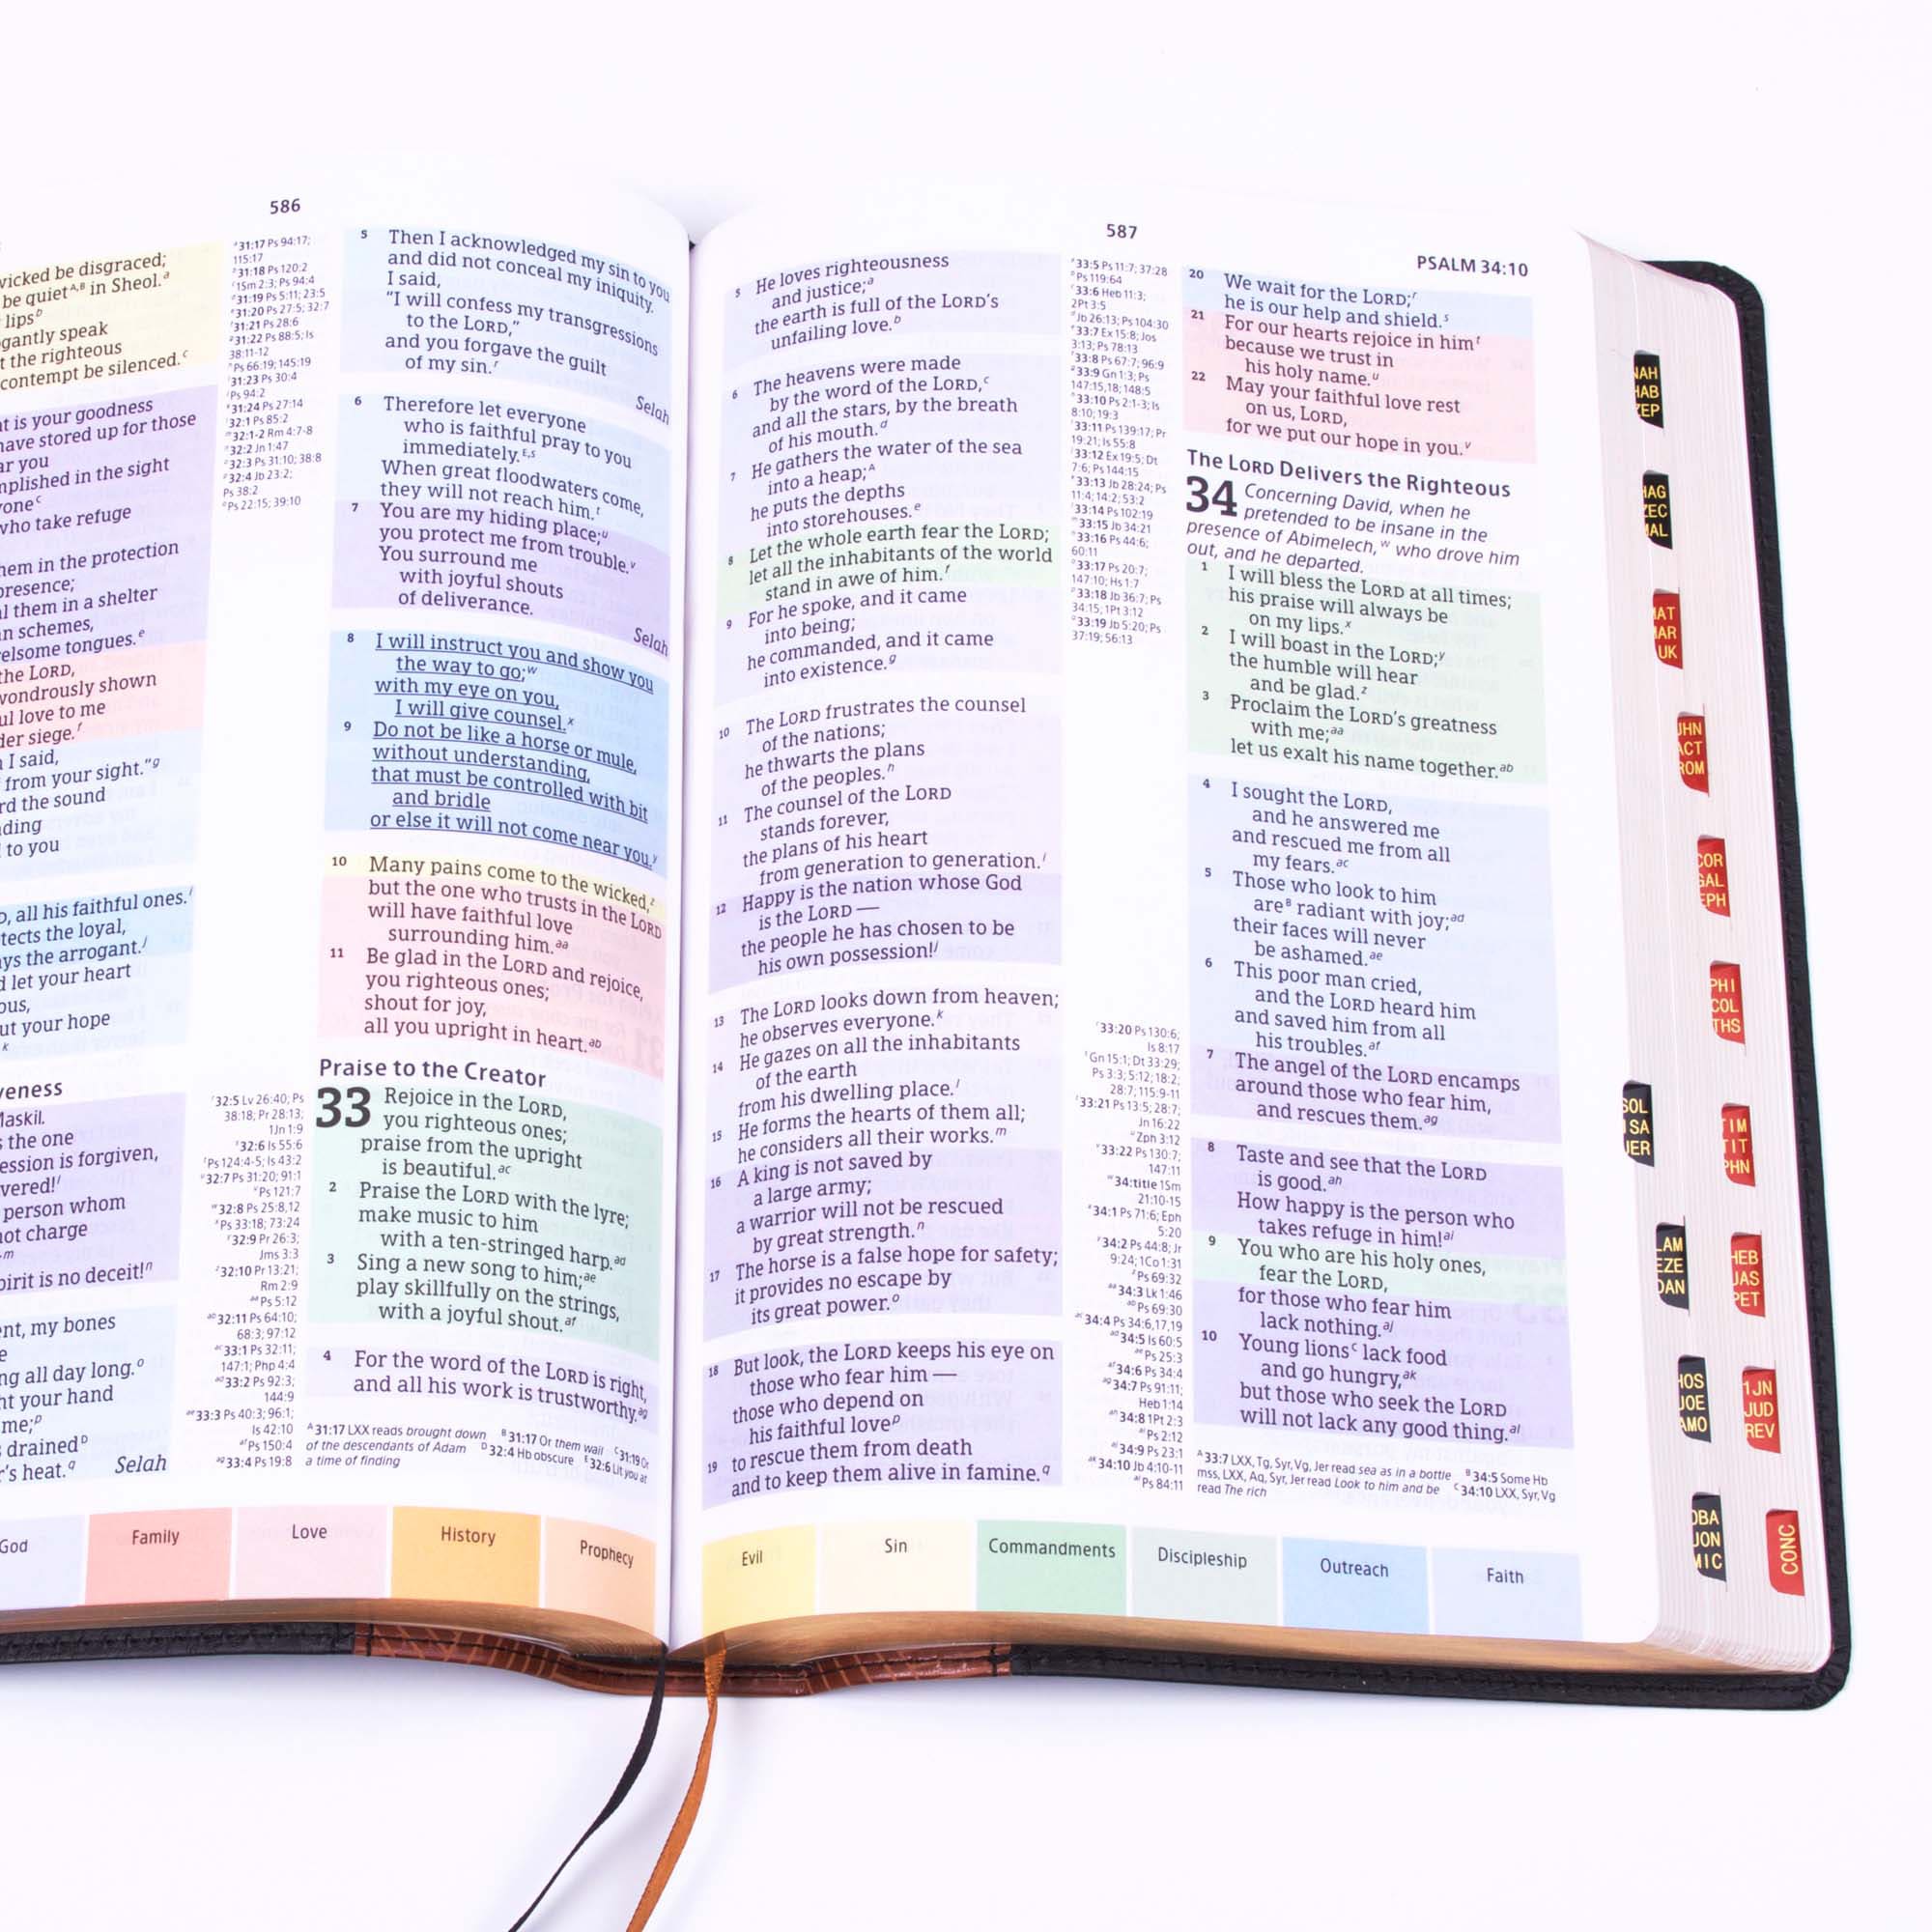 586
wicked be disgraced;
be quietᴬ,ᴮ in Sheol.ᵃ
lipsᵇ
gantly speak
t the righteous
contempt be silenced.ᶜ
t is your goodness
have stored up for those
ar you
mplished in the sight
yoneᶜ
who take refuge
hem in the protection
presence;
l them in a shelter
n schemes,
relsome tongues.ᵉ
the LORD,
wondrously shown
ul love to me
der siege.ᶠ
I said,
from your sight."ᵍ
rd the sound
ding
to you
D, all his faithful ones.ⁱ
tects the loyal,
ays the arrogant.ʲ
d let your heart
ous,
ut your hope
k
veness
Maskil.
s the one
ession is forgiven,
vered!ˡ
person whom
not charge
m
pirit is no deceit!"ⁿ
ent, my bones
e
ng all day long.ᵒ
ht your hand
me;ᵖ
drainedᴰ
r's heat.q Selah
31:17 Ps 94:17;
115:17
31:18 Ps 120:2
1Sm 2:3; Ps 94:4
31:19 Ps 5:11; 23:5
31:20 Ps 27:5; 32:7
31:21 Ps 28:6
31:22 Ps 88:5; Is
38:11-12
Ps 66:19; 145:19
31:23 Ps 30:4
Ps 94:2
31:24 Ps 27:14
32:1 Ps 85:2
32:1-2 Rm 4:7-8
32:2 Jn 1:47
32:3 Ps 31:10; 38:8
32:4 Jb 23:2;
Ps 38:2
Ps 22:15; 39:10
32:5 Lv 26:40; Ps
38:18; Pr 28:13;
1Jn 1:9
32:6 Is 55:6
Ps 124:4-5; Is 43:2
32:7 Ps 31:20; 91:1
Ps 121:7
32:8 Ps 25:8,12
Ps 33:18; 73:24
32:9 Pr 26:3;
Jms 3:3
32:10 Pr 13:21;
Rm 2:9
Ps 5:12
32:11 Ps 64:10;
68:3; 97:12
33:1 Ps 32:11;
147:1; Php 4:4
33:2 Ps 92:3;
144:9
33:3 Ps 40:3; 96:1;
Is 42:10
Ps 150:4
33:4 Ps 19:8
5 Then I acknowledged my sin to you
and did not conceal my iniquity.
I said,
"I will confess my transgressions
to the LORD,"
and you forgave the guilt
of my sin.ʳ
Selah
6 Therefore let everyone
who is faithful pray to you
immediately.ᴱ,ˢ
When great floodwaters come,
they will not reach him.ᵗ
7 You are my hiding place;ᵘ
you protect me from trouble.ᵛ
You surround me
with joyful shouts
of deliverance.
Selah
8 I will instruct you and show you
the way to go;ʷ
with my eye on you,
I will give counsel.ˣ
9 Do not be like a horse or mule,
without understanding,
that must be controlled with bit
and bridle
or else it will not come near you.ʸ
10 Many pains come to the wicked,ᶻ
but the one who trusts in the LORD
will have faithful love
surrounding him.ᵃᵃ
11 Be glad in the LORD and rejoice,
you righteous ones;
shout for joy,
all you upright in heart.ᵃᵇ
Praise to the Creator
33 Rejoice in the LORD,
you righteous ones;
praise from the upright
is beautiful.ᵃᶜ
2 Praise the LORD with the lyre;
make music to him
with a ten-stringed harp.ᵃᵈ
3 Sing a new song to him;ᵃᵉ
play skillfully on the strings,
with a joyful shout.ᵃᶠ
4 For the word of the LORD is right,
and all his work is trustworthy.ᵃᵍ
ᴬ31:17 LXX reads brought down ᴮ31:17 Or them wail ᶜ31:19 Or
of the descendants of Adam ᴰ32:4 Hb obscure ᴱ32:6 Lit you at
a time of finding
God
Family
Love
History
Prophecy
587
PSALM 34:10
5 He loves righteousness
and justice;ᵃ
the earth is full of the LORD's
unfailing love.ᵇ
6 The heavens were made
by the word of the LORD,ᶜ
and all the stars, by the breath
of his mouth.ᵈ
7 He gathers the water of the sea
into a heap;ᴬ
he puts the depths
into storehouses.ᵉ
8 Let the whole earth fear the LORD;
let all the inhabitants of the world
stand in awe of him.ᶠ
9 For he spoke, and it came
into being;
he commanded, and it came
into existence.ᵍ
10 The LORD frustrates the counsel
of the nations;
he thwarts the plans
of the peoples.ʰ
11 The counsel of the LORD
stands forever,
the plans of his heart
from generation to generation.ⁱ
12 Happy is the nation whose God
is the LORD —
the people he has chosen to be
his own possession!ʲ
13 The LORD looks down from heaven;
he observes everyone.ᵏ
14 He gazes on all the inhabitants
of the earth
from his dwelling place.ˡ
15 He forms the hearts of them all;
he considers all their works.ᵐ
16 A king is not saved by
a large army;
a warrior will not be rescued
by great strength.ⁿ
17 The horse is a false hope for safety;
it provides no escape by
its great power.ᵒ
18 But look, the LORD keeps his eye on
those who fear him —
those who depend on
his faithful loveᵖ
19 to rescue them from death
and to keep them alive in famine.q
33:5 Ps 11:7; 37:28
Ps 119:64
33:6 Heb 11:3;
2Pt 3:5
Jb 26:13; Ps 104:30
33:7 Ex 15:8; Jos
3:13; Ps 78:13
33:8 Ps 67:7; 96:9
33:9 Gn 1:3; Ps
147:15,18; 148:5
33:10 Ps 2:1-3; Is
8:10; 19:3
33:11 Ps 139:17; Pr
19:21; Is 55:8
33:12 Ex 19:5; Dt
7:6; Ps 144:15
33:13 Jb 28:24; Ps
11:4; 14:2; 53:2
33:14 Ps 102:19
33:15 Jb 34:21
33:16 Ps 44:6;
60:11
33:17 Ps 20:7;
147:10; Hs 1:7
33:18 Jb 36:7; Ps
34:15; 1Pt 3:12
33:19 Jb 5:20; Ps
37:19; 56:13
33:20 Ps 130:6;
Is 8:17
Gn 15:1; Dt 33:29;
Ps 3:3; 5:12; 18:2;
28:7; 115:9-11
33:21 Ps 13:5; 28:7;
Jn 16:22
Zph 3:12
33:22 Ps 130:7;
147:11
34:title 1Sm
21:10-15
34:1 Ps 71:6; Eph
5:20
34:2 Ps 44:8; Jr
9:24; 1Co 1:31
Ps 69:32
34:3 Lk 1:46
Ps 69:30
34:4 Ps 34:6,17,19
34:5 Is 60:5
Ps 25:3
34:6 Ps 34:4
34:7 Ps 91:11;
Heb 1:14
34:8 1Pt 2:3
Ps 2:12
34:9 Ps 23:1
34:10 Jb 4:10-11
Ps 84:11
20 We wait for the LORD;ʳ
he is our help and shield.ˢ
21 For our hearts rejoice in himᵗ
because we trust in
his holy name.ᵘ
22 May your faithful love rest
on us, LORD,
for we put our hope in you.ᵛ
The LORD Delivers the Righteous
34 Concerning David, when he
pretended to be insane in the
presence of Abimelech,ʷ who drove him
out, and he departed.
1 I will bless the LORD at all times;
his praise will always be
on my lips.ˣ
2 I will boast in the LORD;ʸ
the humble will hear
and be glad.ᶻ
3 Proclaim the LORD's greatness
with me;ᵃᵃ
let us exalt his name together.ᵃᵇ
4 I sought the LORD,
and he answered me
and rescued me from all
my fears.ᵃᶜ
5 Those who look to him
areᴮ radiant with joy;ᵃᵈ
their faces will never
be ashamed.ᵃᵉ
6 This poor man cried,
and the LORD heard him
and saved him from all
his troubles.ᵃᶠ
7 The angel of the LORD encamps
around those who fear him,
and rescues them.ᵃᵍ
8 Taste and see that the LORD
is good.ᵃʰ
How happy is the person who
takes refuge in him!ᵃⁱ
9 You who are his holy ones,
fear the LORD,
for those who fear him
lack nothing.ᵃʲ
10 Young lionsᶜ lack food
and go hungry,ᵃᵏ
but those who seek the LORD
will not lack any good thing.ᵃˡ
ᴬ33:7 LXX, Tg, Syr, Vg, Jer read sea as in a bottle ᴮ34:5 Some Hb
mss, LXX, Aq, Syr, Jer read Look to him and be ᶜ34:10 LXX, Syr, Vg
read The rich
Evil
Sin
Commandments
Discipleship
Outreach
Faith
NAH
HAB
ZEP
HAG
ZEC
MAL
MAT
MAR
LUK
JHN
ACT
ROM
COR
GAL
EPH
PHI
COL
THS
SOL
ISA
JER
TIM
TIT
PHN
LAM
EZE
DAN
HEB
JAS
PET
HOS
JOE
AMO
1JN
JUD
REV
OBA
JON
MIC
CONC